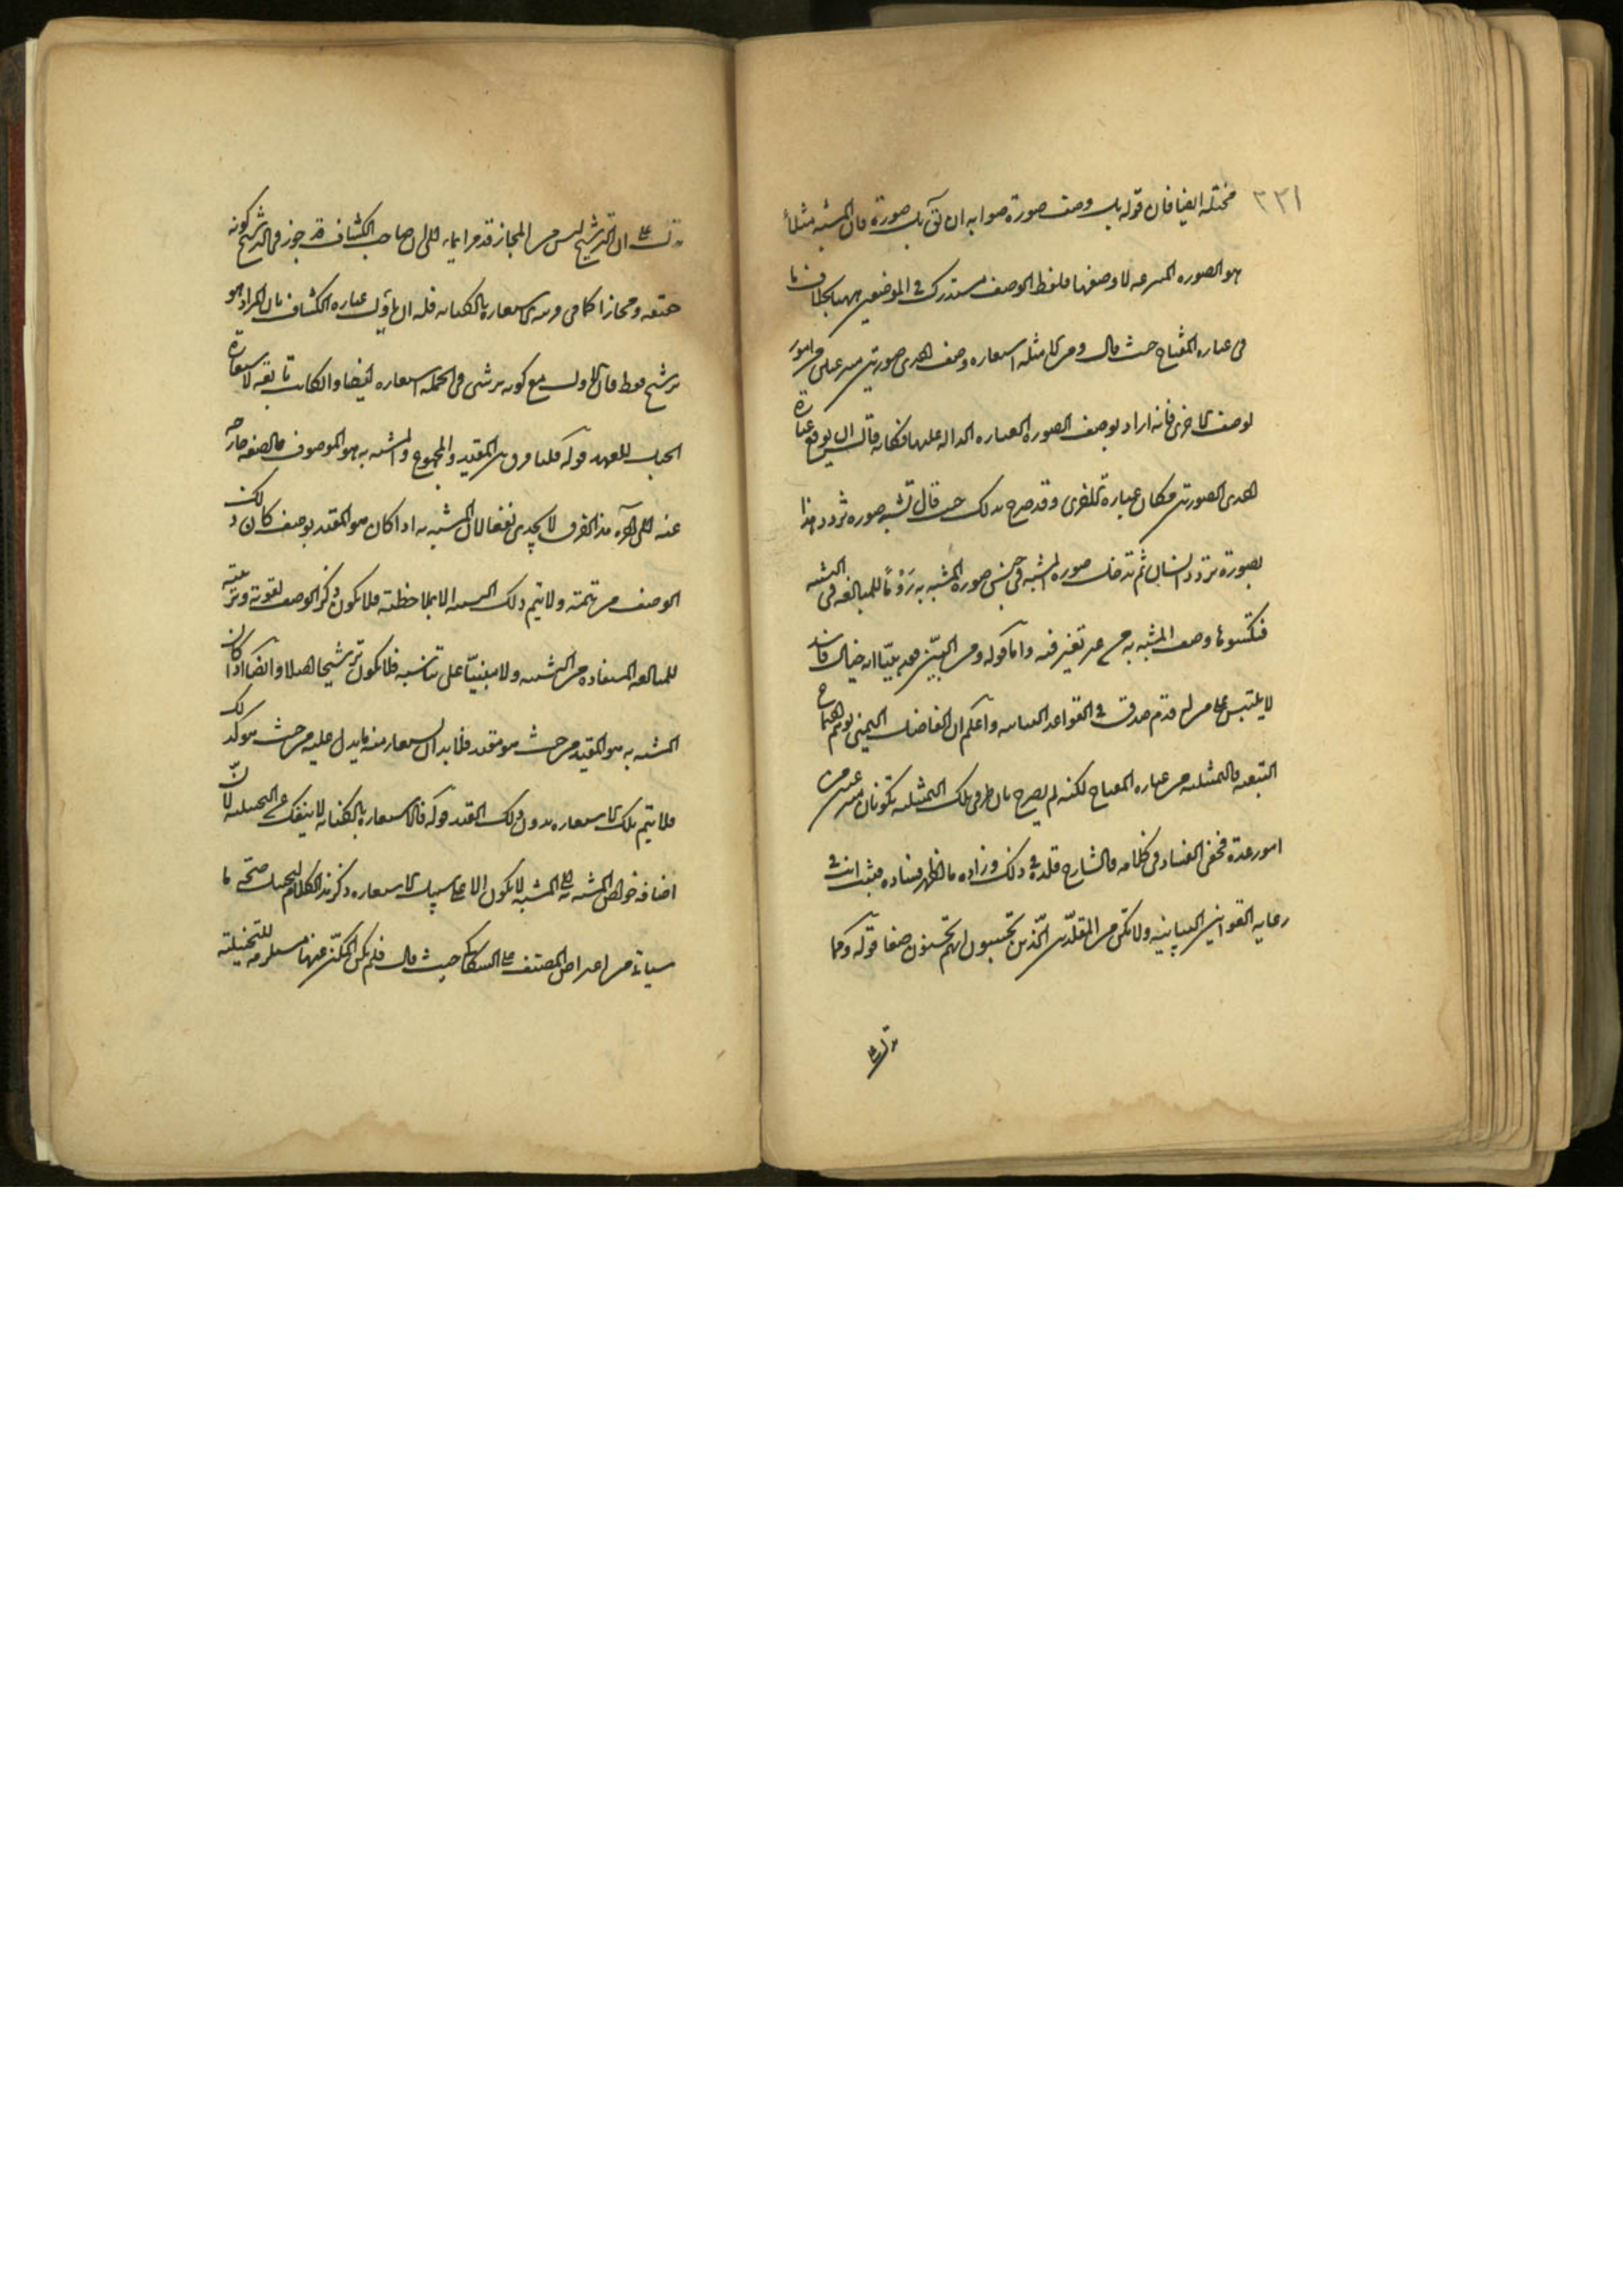 ٢٢١
مختلة ايضا فان قوله بل وصف صورة صوابه ان يق بل صورة فان المشبه مثلا
هو الصورة المنتزعة لا وصفها فلفظ الوصف مستدرك في الموضعين بخلاف ما
في عبارة المفتاح حيث قال ومن الامثلة استعارة وصف احدى صورتين منتزعتين من امور
لوصف الاخرى فانه اراد بوصف الصورة العبارة الدالة عليها فكانه قال ان يوقع عبارة
احدى الصورتين مكان عبارة الاخرى وقد صرح بذلك حيث قال تشبه صورة تردد هذا
بصورة تردد انسان ثم تدخل صورة المشبه في جنس صورة المشبه به روما للمبالغة في التشبيه
فتكسوها وصف المشبه به من غير تغيير فيه واما قوله ومن البين فقد بينا انه خيال فاسد
لا يلتبس على من له قدم صدق في القواعد البيانية واعلم ان الفاضل اليمني توهم اجتماع
التبعية والتمثيلية من عبارة المفتاح لكنه لم يصرح بان طرفي تلك التمثيلية تكونان منتزعتين من
امور عدة فخفي الفساد في كلامه والشارح قلده في ذلك وزاده ما اظهر فساده فثبت انت في
رعاية القوانين البيانية ولا تكن من المقلدين الذين يحسبون انهم يحسنون صنعا قوله وكما
ان الترشيح ليس من المجاز قد مر ايماء الى ان صاحب الكشاف قد جوز في الترشيح كونه
حقيقة ومجازا كما في قرينة الاستعارة بالكناية فله ان ياول عبارة الكشاف بان المراد هو
ترشيح فقط فان الاول مع كونه ترشيحا في الجملة استعارة ايضا وان كانت تابعة لاستعارة
الحبل للعهد قوله قلنا فرق بين المقيد والمجموع والمشبه به هو الموصوف والصفة خارجة
عنه الى آخره هذا الفرق لا يجدي نفعا لان المشبه به اذا كان هو المقيد بوصف كان ذلك
الوصف من تتمته ولا يتم ذلك التشبيه الا بملاحظته فلا يكون ذكر الوصف تقوية وتربية
للمبالغة المستفادة من التشبيه ولا مبنيا على تناسيه فلا يكون ترشيحا اصلا وايضا اذا كان
المشبه به هو المقيد من حيث هو مقيد فلا بد ان يستعار منه ما يدل عليه من حيث هو كذلك
فلا يتم تلك الاستعارة بدون ذلك القيد قوله فالاستعارة بالكناية لا ينفك عن التخييلية لان
اضافة خواص المشبه به الى المشبه لا يكون الا على سبيل الاستعارة ذكر هذا الكلام ليحمل صحة ما
سياتي من اعتراض المصنف على السكاكي حيث قال فلم يكن المكنى عنها مستلزمة للتخييلية